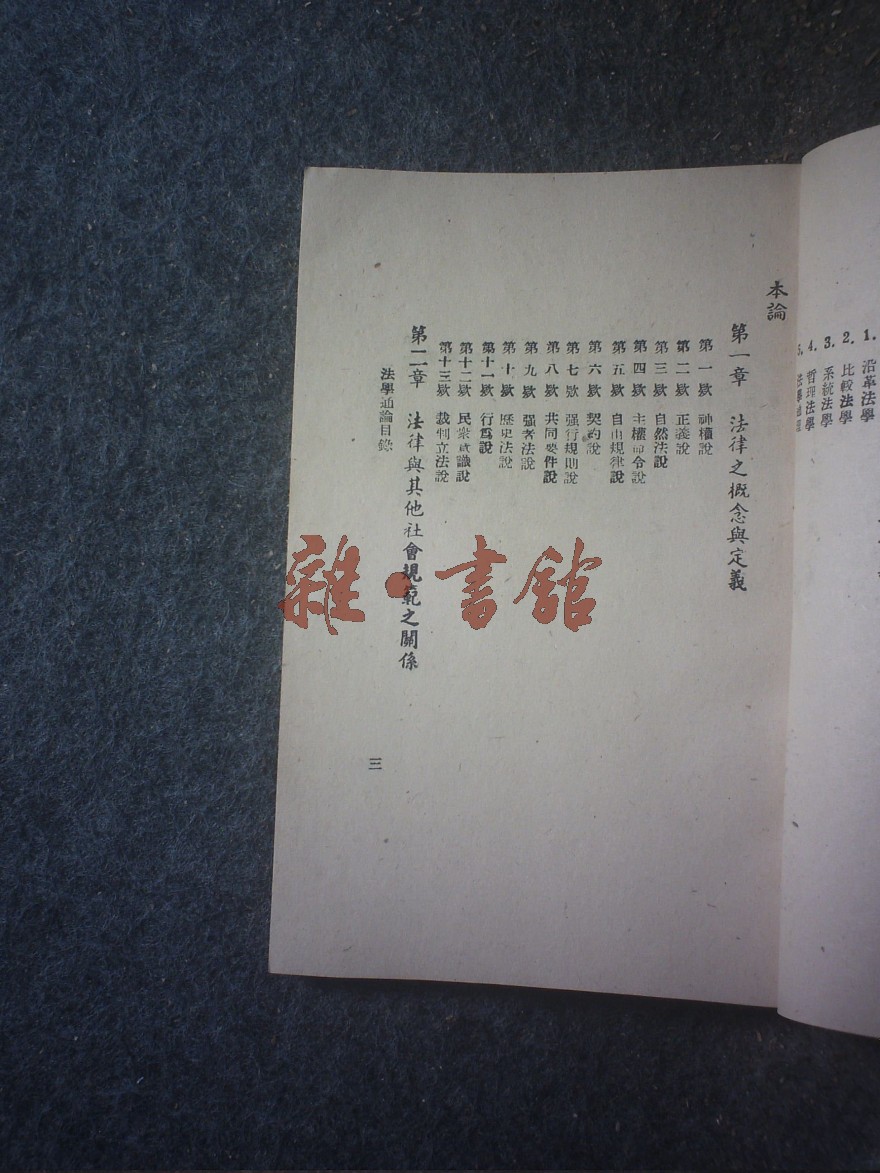 1. 沿革法學
2. 比較法學
3. 系統法學
4. 哲理法學
5.
本論
第一章 法律之概念與定義
第一欵 神權說
第二欵 正義說
第三欵 自然法說
第四欵 主權命令說
第五欵 自由規律說
第六欵 契約說
第七欵 强行規則說
第八欵 共同要件說
第九欵 强者法說
第十欵 歷史法說
第十一欵 行爲說
第十二欵 民衆意識說
第十三欵 裁判立法說
第二章 法律與其他社會規範之關係
法學通論目錄
三
雜·書館